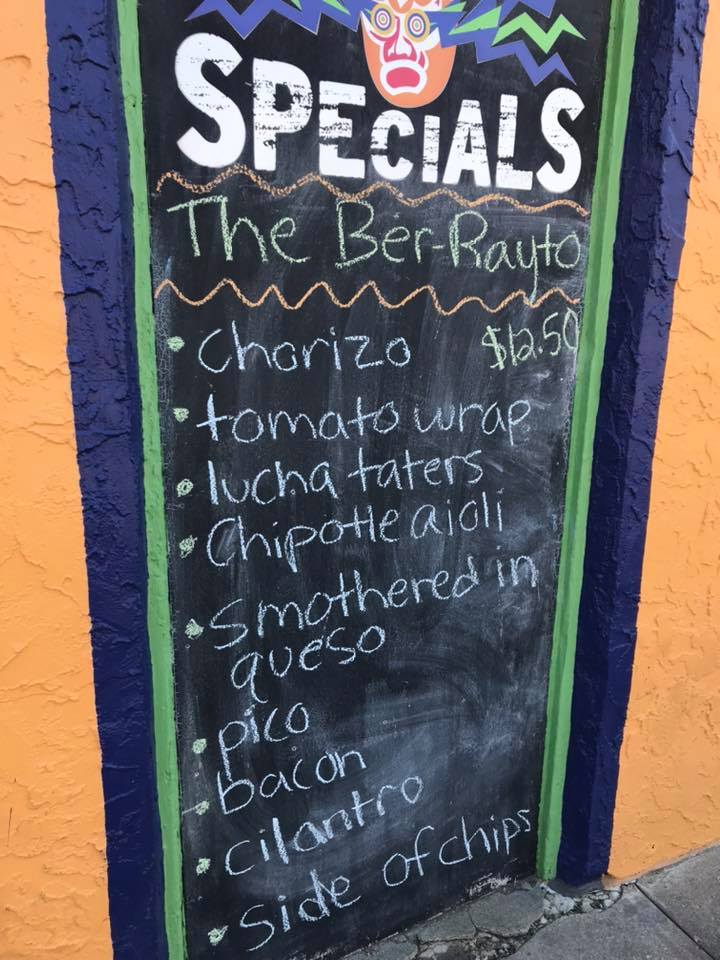 SPECIALS
The Ber-Rayto
• Chorizo $12.50
• tomato wrap
• lucha taters
• Chipotle aioli
• smothered in
queso
• pico
• bacon
• cilantro
• side of chips